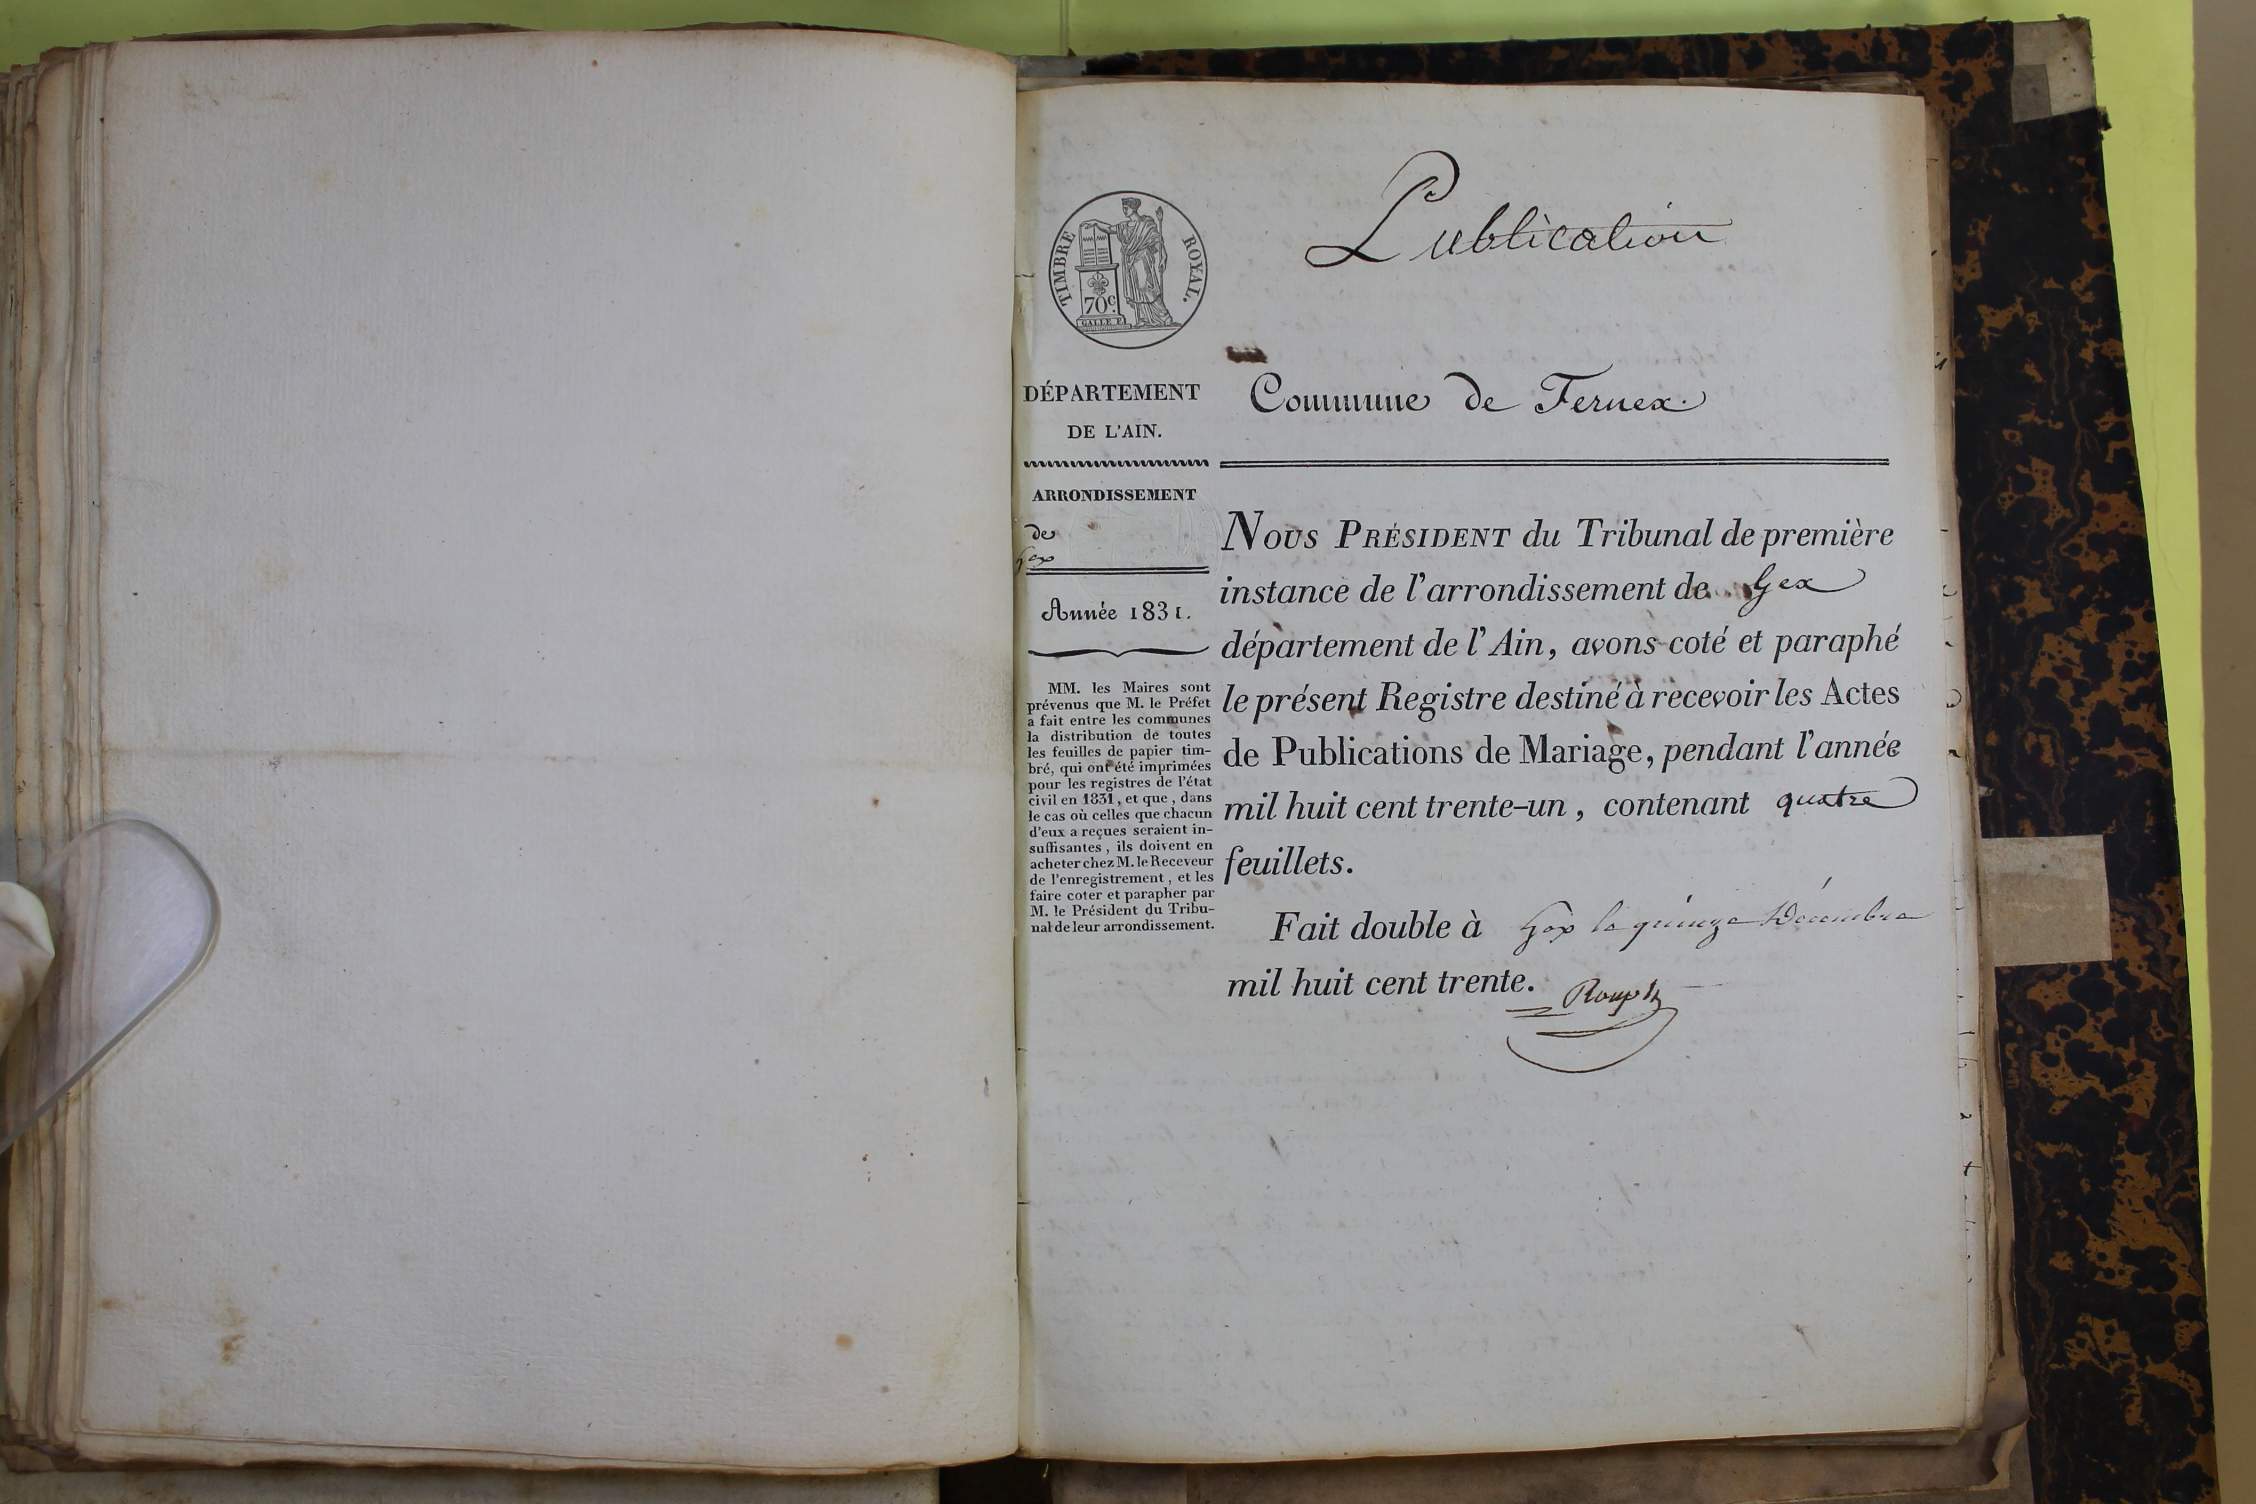 Publication
TIMBRE ROYAL.
70c.
GALLE F.
DÉPARTEMENT
DE L'AIN.
Commune de Fernex.
ARRONDISSEMENT
de
Gex
Année 1831.
MM. les Maires sont
prévenus que M. le Préfet
a fait entre les communes
la distribution de toutes
les feuilles de papier tim-
bré, qui ont été imprimées
pour les registres de l'état
civil en 1831, et que, dans
le cas où celles que chacun
d'eux a reçues seraient in-
suffisantes, ils doivent en
acheter chez M. le Receveur
de l'enregistrement, et les
faire coter et parapher par
M. le Président du Tribu-
nal de leur arrondissement.
NOUS PRÉSIDENT du Tribunal de première
instance de l'arrondissement de Gex
département de l'Ain, avons coté et paraphé
le présent Registre destiné à recevoir les Actes
de Publications de Mariage, pendant l'année
mil huit cent trente-un, contenant quatre
feuillets.
Fait double à Gex le quinze Décembre
mil huit cent trente.